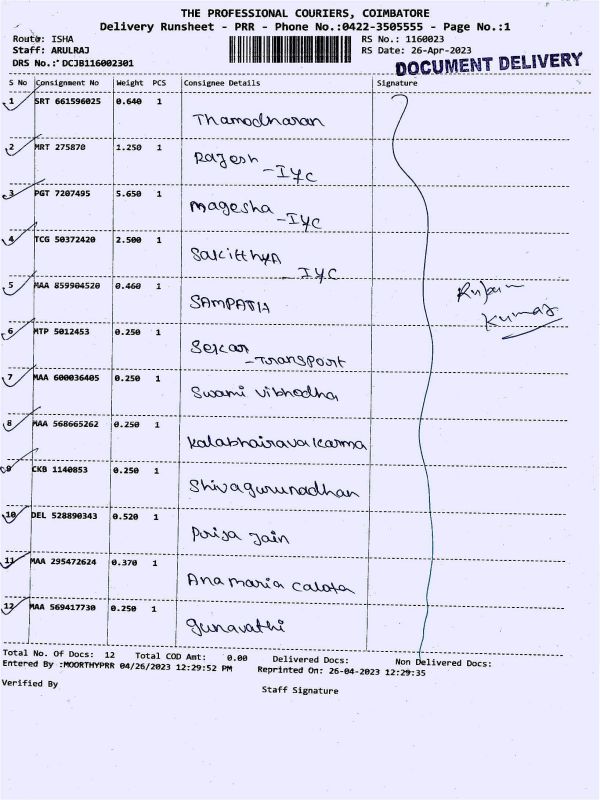 THE PROFESSIONAL COURIERS, COIMBATORE
Delivery Runsheet - PRR - Phone No.:0422-3505555 - Page No.:1
Route: ISHA RS No.: 1160023
Staff: ARULRAJ RS Date: 26-Apr-2023
DRS No.: DCJB116002301
DOCUMENT DELIVERY
S No Consignment No Weight PCS Consignee Details Signature
1 SRT 661596025 0.640 1
Thamodharan
2 MRT 275870 1.250 1
Rajesh
-IYC
3 PGT 7207495 5.650 1
Magesha
-IYC
4 TCG 50372420 2.500 1
Sakitthya
-IYC
5 MAA 859904520 0.460 1
SAMPATH
Kumar
6 MTP 5012453 0.250 1
Sekar
-Transport
7 MAA 600036405 0.250 1
Swami Vibhodha
8 MAA 568665262 0.250 1
Kalabhairava Karma
9 CKB 1140853 0.250 1
Shivagurunadhan
10 DEL 528890343 0.520 1
Priya Jain
11 MAA 295472624 0.370 1
Ana maria Calota
12 MAA 569417730 0.250 1
Gunavathi
Total No. Of Docs: 12 Total COD Amt: 0.00 Delivered Docs: Non Delivered Docs:
Entered By :MOORTHYPRR 04/26/2023 12:29:52 PM Reprinted On: 26-04-2023 12:29:35
Verified By
Staff Signature